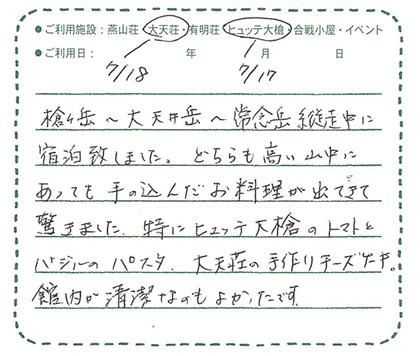 ●ご利用施設:燕山荘・大天荘・有明荘・ヒュッテ大槍・合戦小屋・イベント
●ご利用日: 年 月 日
7/18 7/17
槍ヶ岳〜大天井岳〜常念岳縦走中に
宿泊致しました。どちらも高い山中に
あっても手の込んだお料理が出てきて
驚きました。特にヒュッテ大槍のトマトと
バジルのパスタ、大天荘の手作りチーズケーキ。
館内が清潔なのもよかったです。